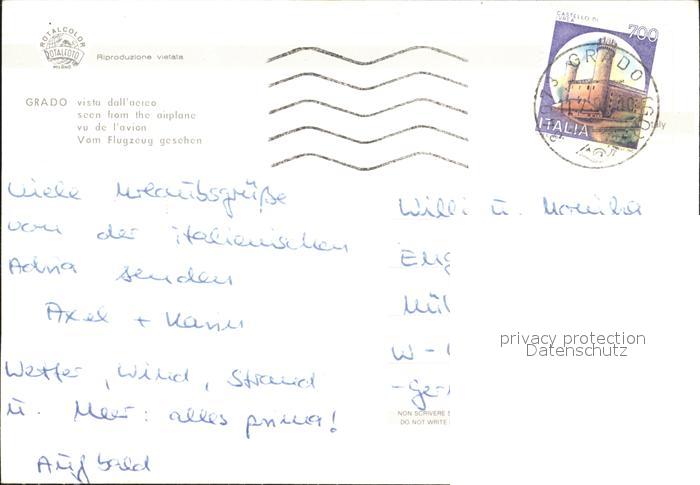 ROTALCOLOR
ROTALFOTO
MILANO
Riproduzione vietata
GRADO vista dall'aereo
seen from the airplane
vu de l'avion
Vom Flugzeug gesehen
CASTELLO DI IVREA
700
ITALIA
GRADO
Viele Urlaubsgrüße
von der italienischen
Adria senden
Axel + Karin
Wetter, Wind, Strand
u. Meer: alles prima!
Auf bald
Willi u. Monika
W -
NON SCRIVERE
DO NOT WRITE
privacy protection
Datenschutz